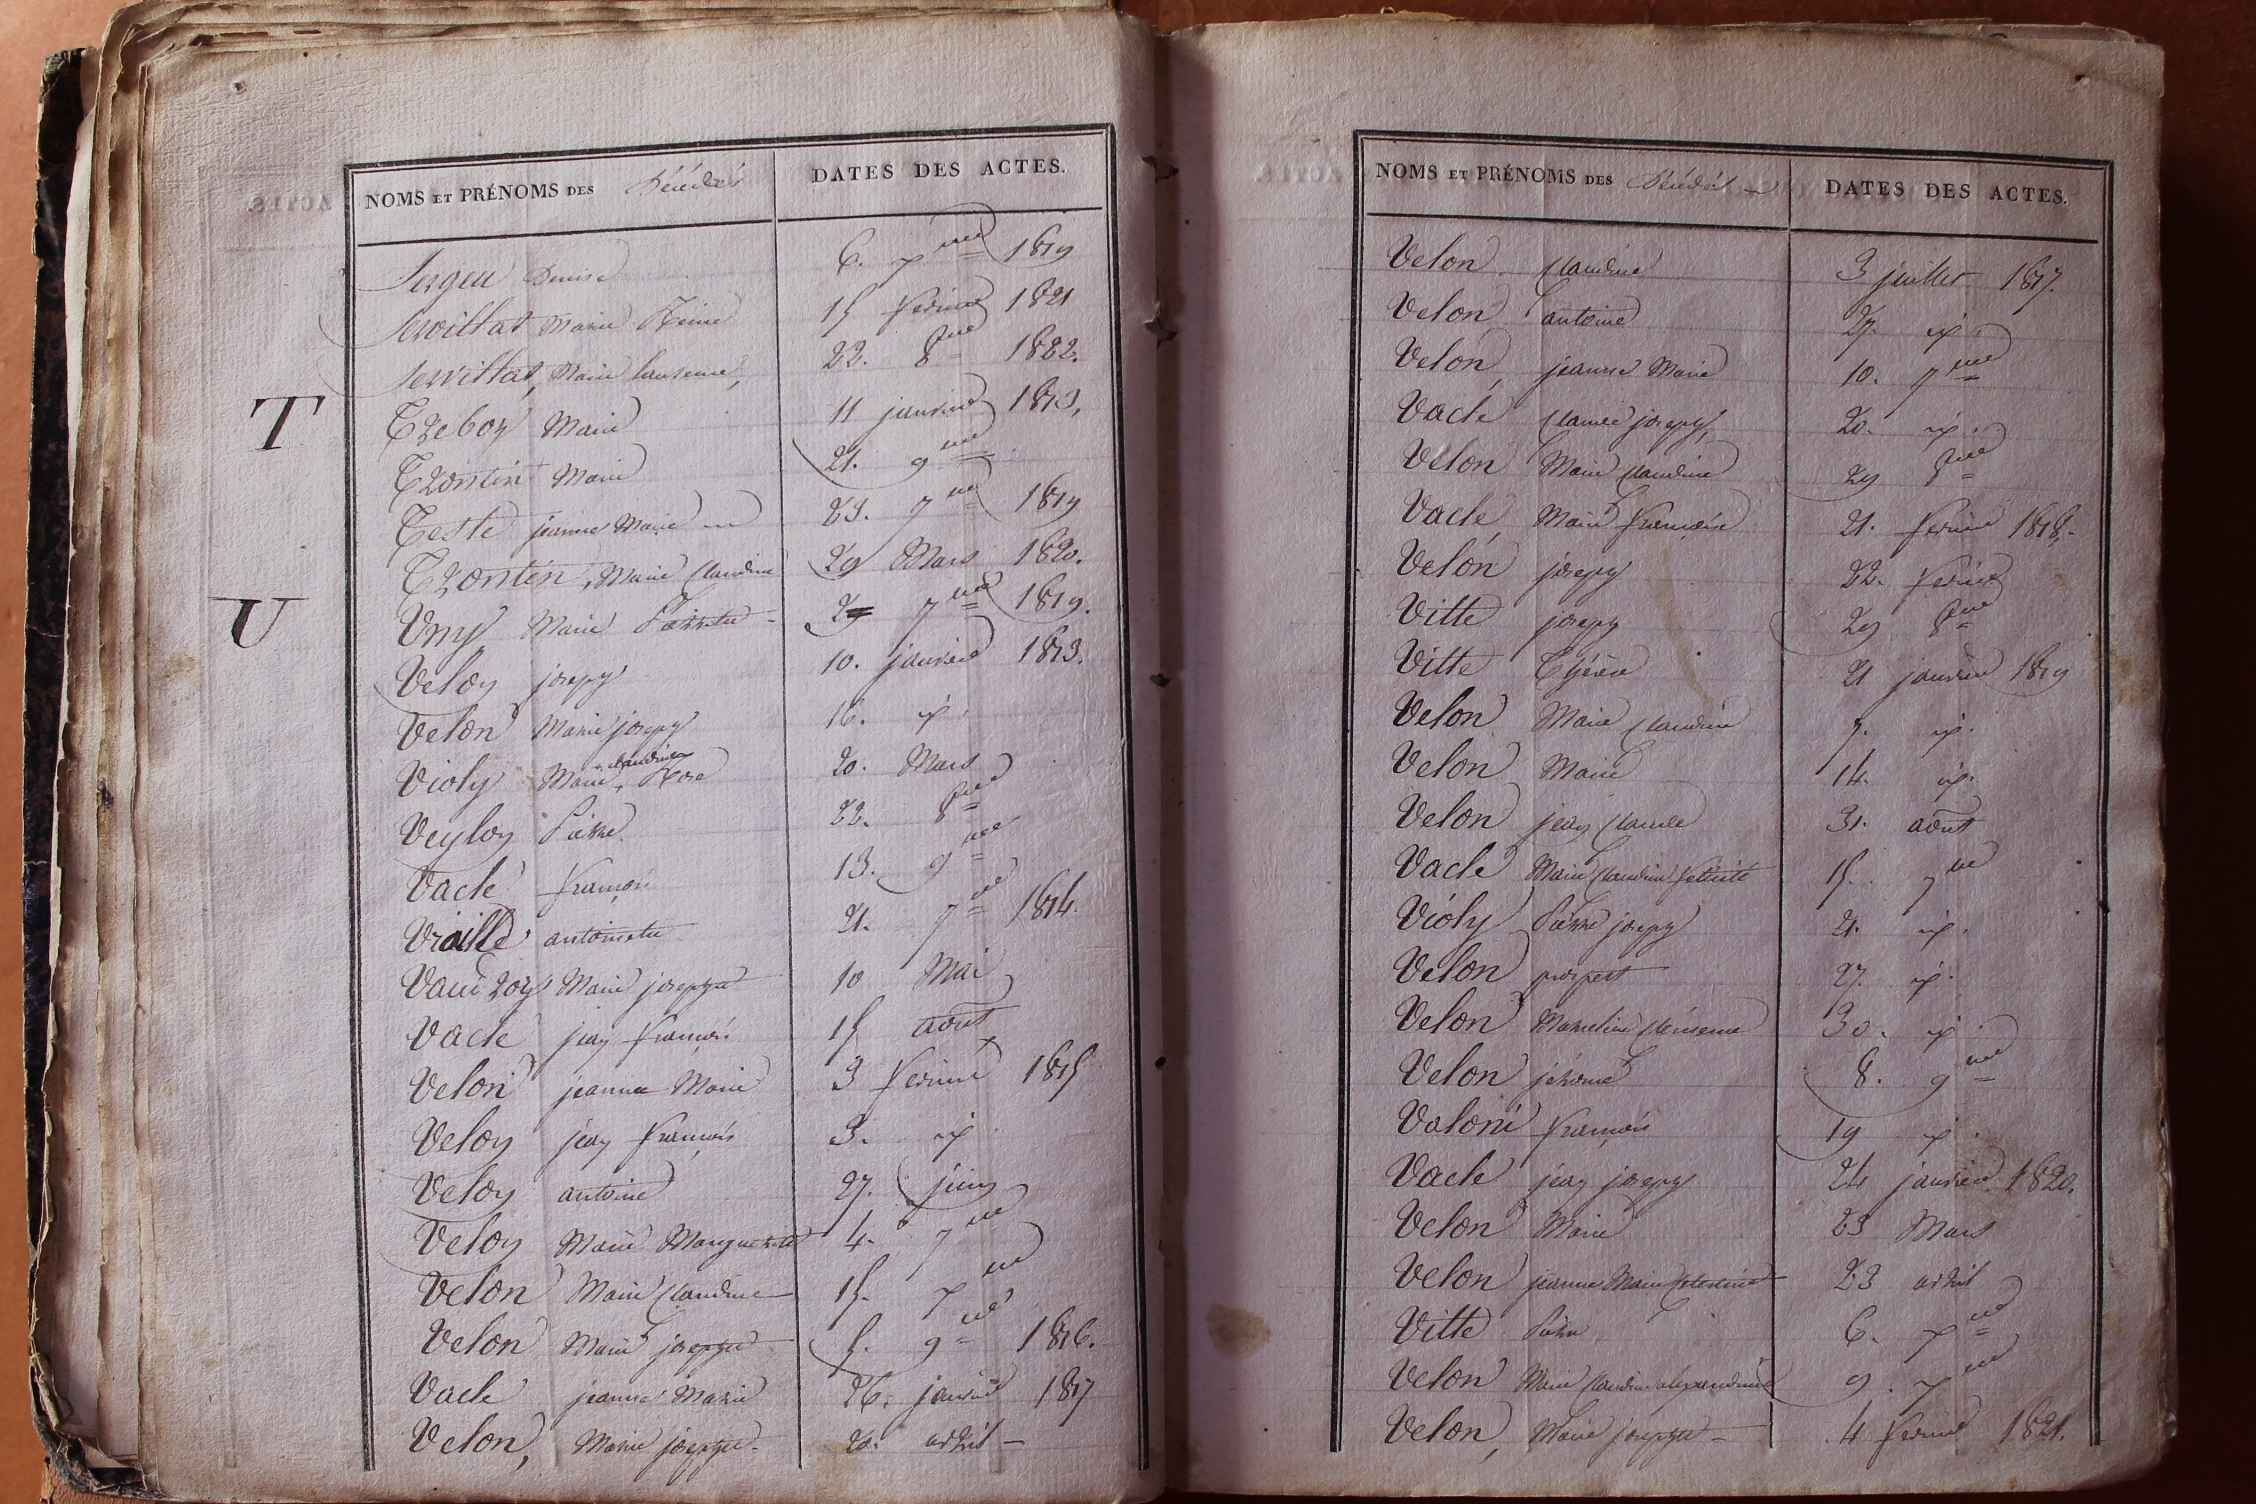 NOMS ET PRÉNOMS DES Décédés DATES DES ACTES.
Denise 6. 7bre 1819
Servillat Marie Reine 15 Fevrier 1821
Servillat, Marie 22. 8bre 1822.
T
Treboz Marie 11 janvier 1813,
Trontin Marie 21. 9bre
Teste jeanne Marie 23. 7bre 1819
Trontin, Marie Claudine 29 Mars 1820.
U
Marie Pierrette 7bre 1819.
Velon joseph 10. janvier 1813.
Velon Marie joseph 16. id.
Violy Marie Claudine Rose 20. Mars
Veylon Pierre 22. 8bre
Vacle François 13. 9bre
antoinette 21. 7bre 1814.
Marie josephte 10 Mai
Vacle jean François 15 août
Velon jeanne Marie 3 Fevrier 1815
Velon jean François 3. id.
Velon antoine 27. juin
Velon Marie Marguerite 4. 7bre
Velon Marie Claudine 15. 7bre
Velon Marie josephte 5. 9bre 1816.
Vacle jeanne Marie 26. janvier 1817
Velon, Marie josephte 20. avril
NOMS ET PRÉNOMS DES Décédés DATES DES ACTES.
Velon Claudine 3 juillet 1817.
Velon antoine 27. id.
Velon jeanne Marie 10. 7bre
Vacle Claude joseph 20. id.
Velon Marie Claudine 29 8bre
Vacle Marie Françoise 21. Fevrier 1818.
Velon joseph 22. Fevrier
Vitte joseph 29 8bre
Vitte Thérèse 21 janvier 1819
Velon Marie Claudine 7. id.
Velon Marie 14. id.
Velon jean Claude 31. août
Vacle Marie Claudine Félicité 15. 7bre
Violy Pierre joseph 21. id.
Velon prospert 27. id.
Velon Marceline 30. id.
Velon jérome 8. 9bre
François 19 id.
Vacle jean joseph 24 janvier 1820.
Velon Marie 23 Mars
Velon jeanne Marie Celestine 23 avril
Vitte Pierre 6. 7bre
Velon Marie Claudine alexandrine 9. 7bre
Velon, Marie josephte 4 Fevrier 1821.